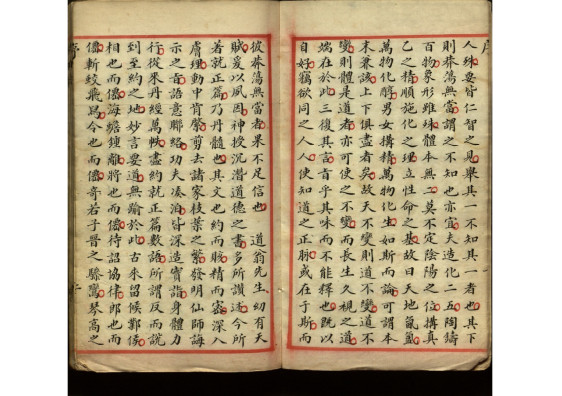 人殊要皆仁智之見舉其一不知其一者也其下
則莽蕩無當謂之不知也亦宜夫造化二五陶鑄
百物象形雖殊體本無二莫不定陰陽之位搆真
乙之精順施化之理立性命之基故曰天地氤氳
萬物化醇男女搆精萬物化生如斯而論可謂本
末兼該上下俱盡者矣故天不變則道不變道不
變則體是道者亦可使之不變而長生久視之道
端在於此三復其言旨乎其味而不能釋也既以
自好竊欲同之人人使知道之正脉或在于斯而
彼莽蕩無當者果不足信也　道翁先生幼有天
賦爰以夙因神授沉潛道德之書多所讚述今所
著就正篇乃丹髓也其文也約而賅精而密深入
膚理動中肯綮剪去諸家枝葉之繁發明仙師誨
示之旨語意聯絡功夫湊泊皆深造實詣身體力
行從來丹經萬帙盡約就正篇數語所謂反而說
到至約之地妙言要道無踰於此古來留候鄴侯
相也而儒海蟾鍾離將也而儒待詔協律郎也而
儒斬蛟飛舄令也而儒奇若子晋之驂鸞琴高之